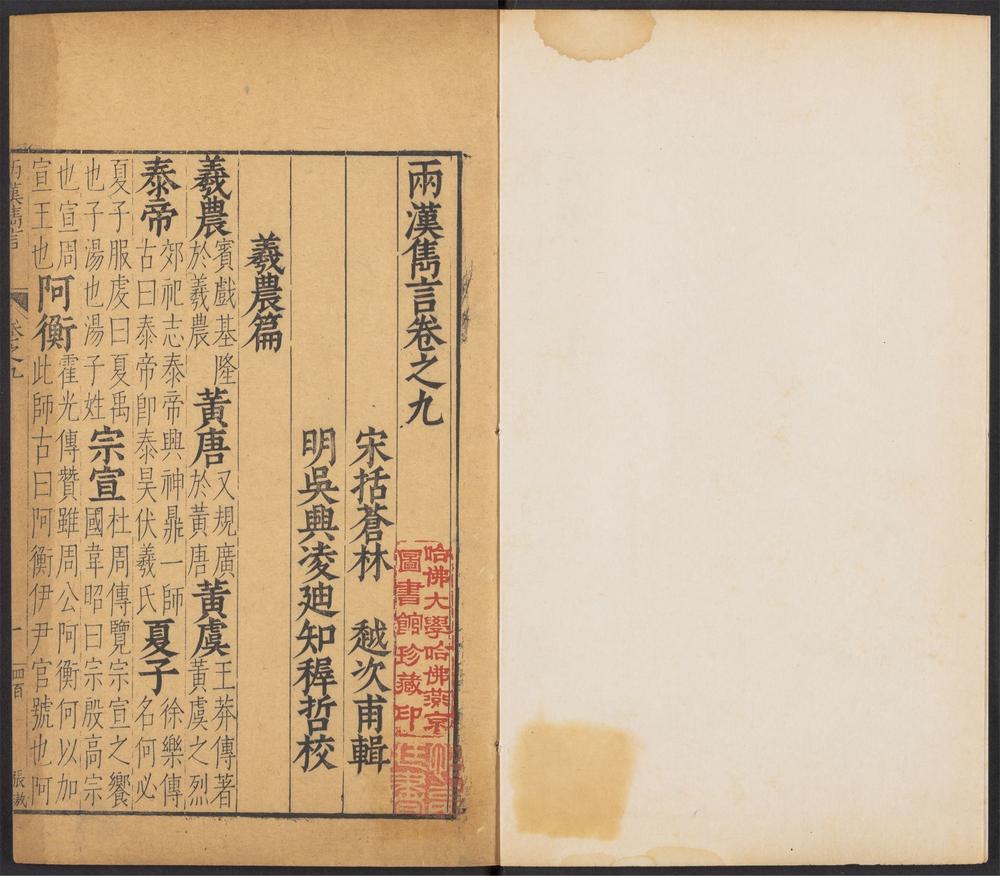 兩漢雋言卷之九
宋括蒼林 越次甫輯
明吳興凌迪知稺哲校
羲農篇
羲農賓戲基隆於羲農黃唐又規廣於黃唐黃虞王莽傳著黃虞之烈
泰帝郊祀志泰帝興神鼎一師古曰泰帝卽泰昊伏羲氏夏子徐樂傳名何必
夏子服虔曰夏禹也子湯也湯子姓宗宣杜周傳覽宗宣之饗國韋昭曰宗殷高宗
也宣周宣王也阿衡霍光傳贊雖周公阿衡何以加此師古曰阿衡伊尹官號也阿
兩漢雋言 卷之九 一 四百
哈佛大學哈佛燕京
圖書館珍藏印